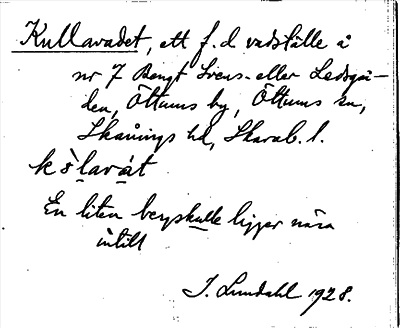 Kullavadet, ett f.d vadställe å
nr 7 Bengt Svens- eller Ledsgår-
den, Öttums by, Öttums sn,
Skånings hd, Skarab. l.
En liten bergskulle ligger nära
intill
J. Lundahl 1928.